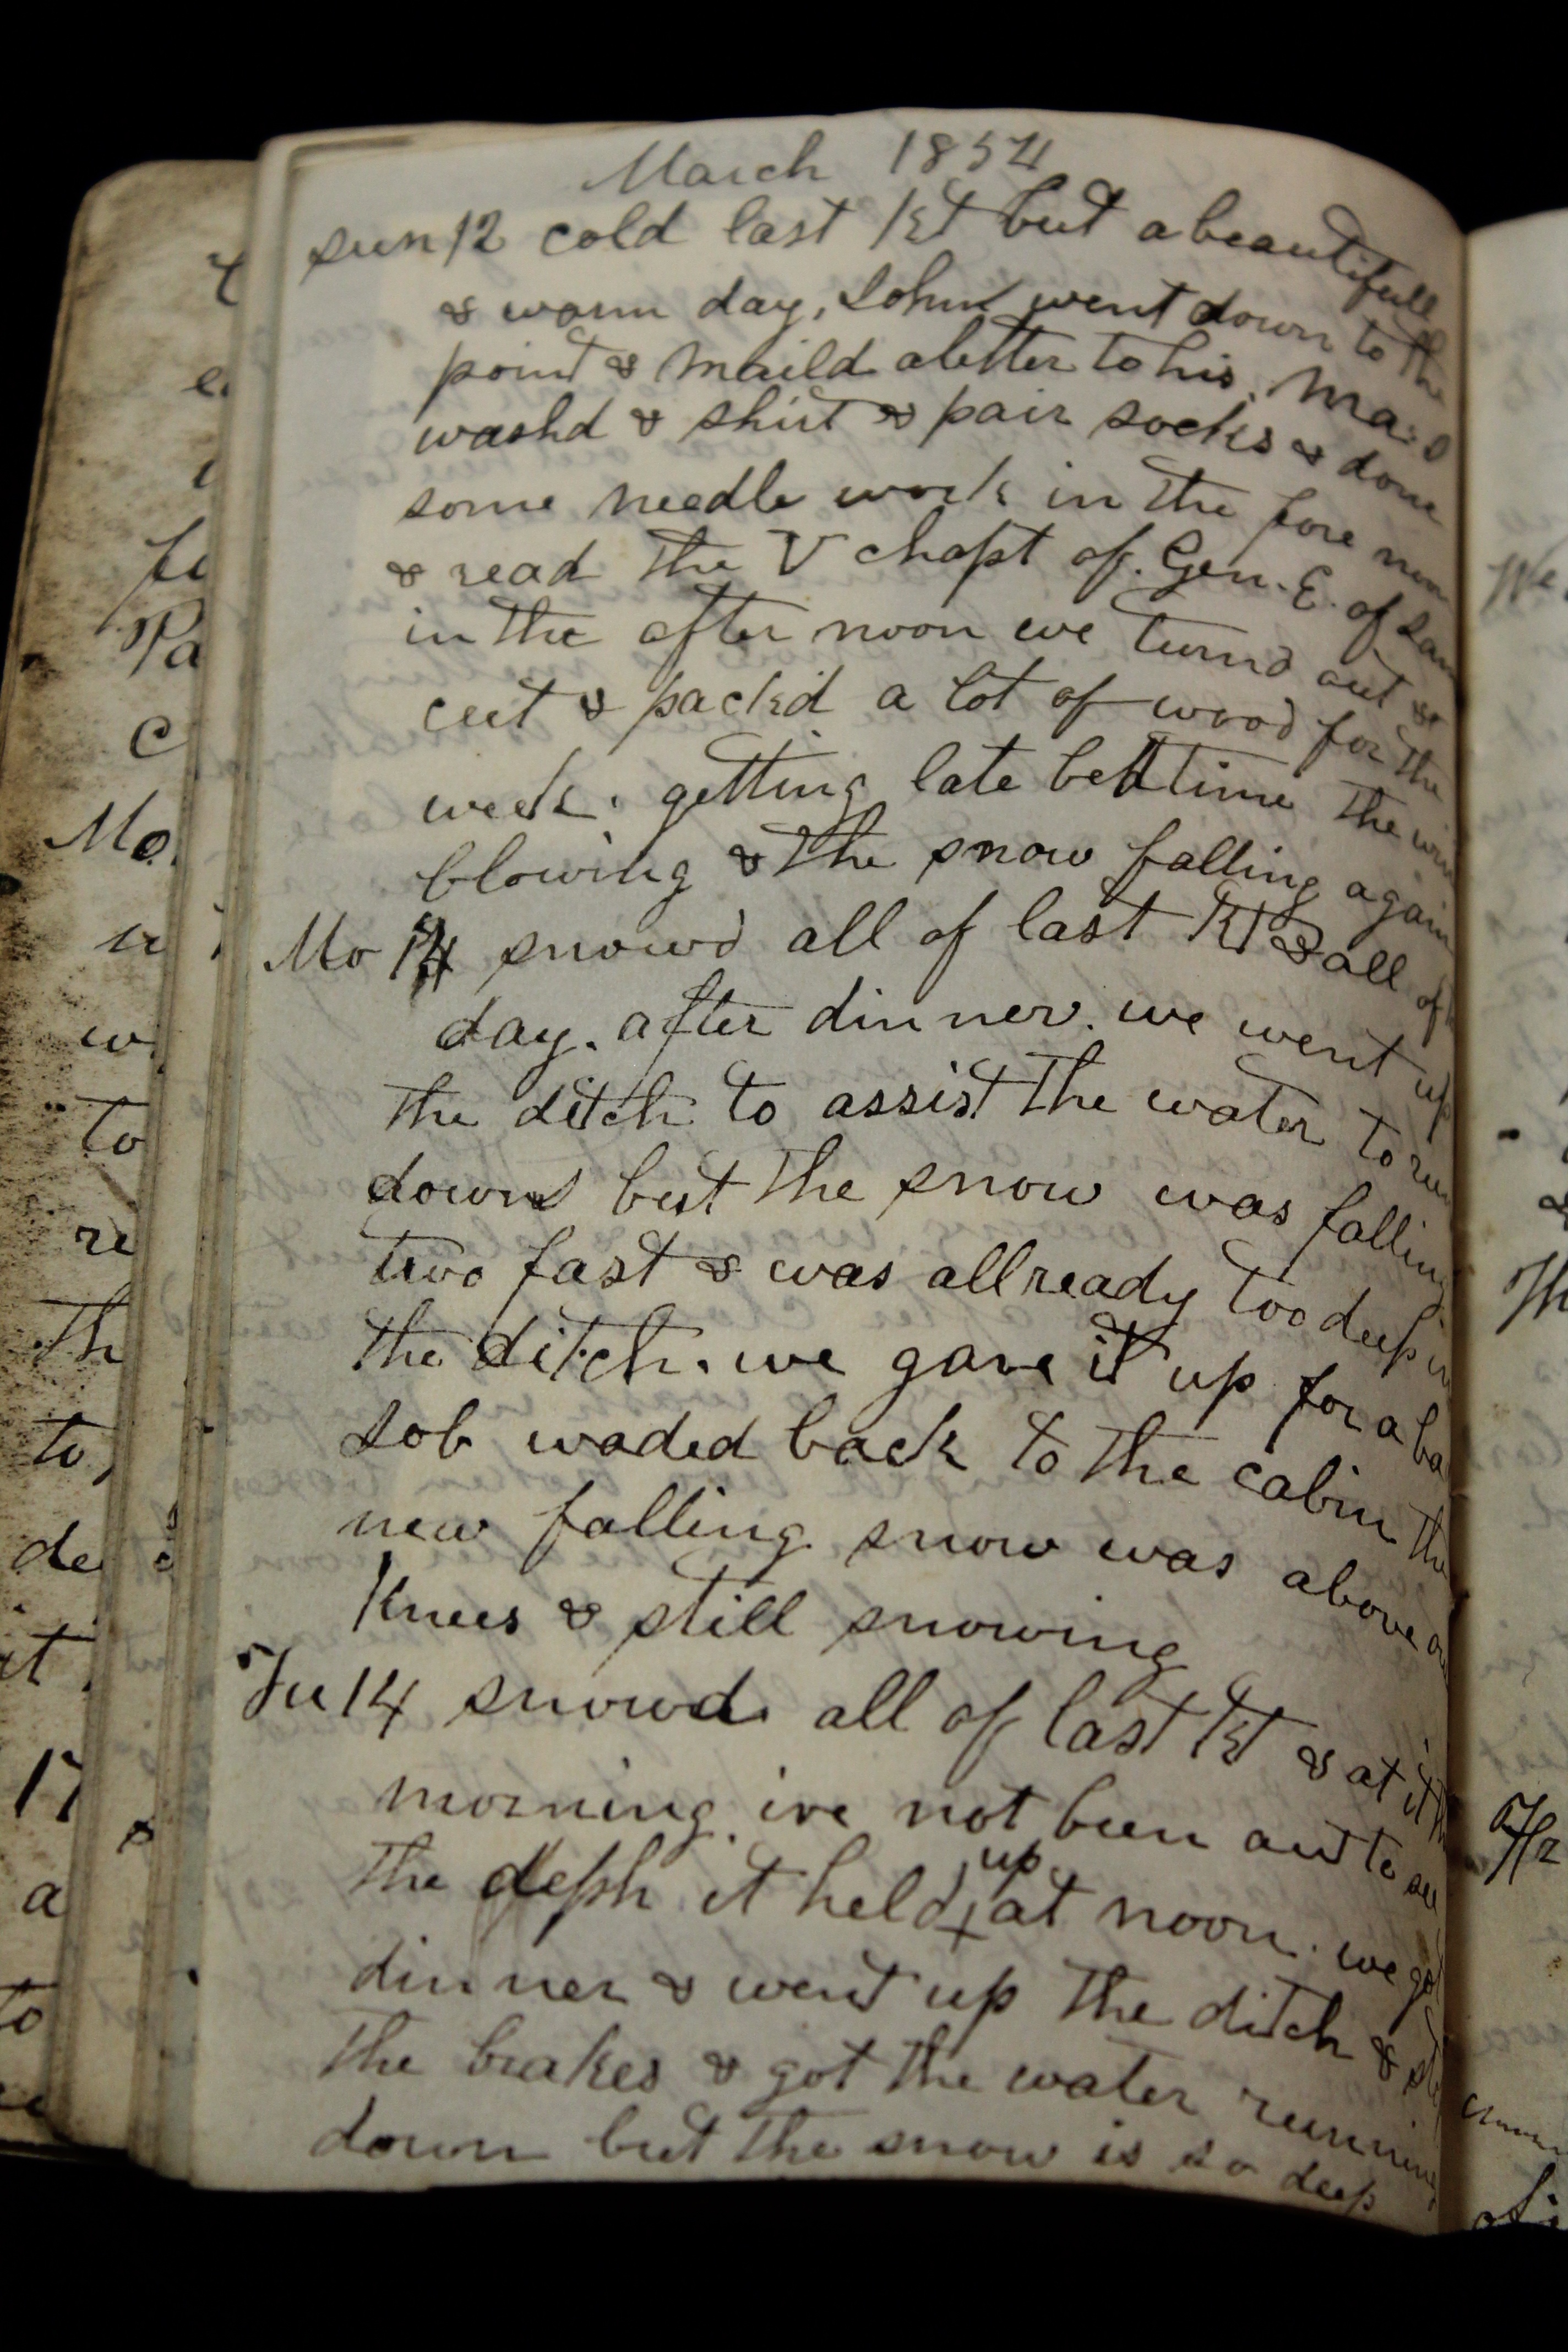 March 1854
sun 12 cold last Kt but a beautifull
& warm day, John went down to the
point & maild a letter to his. Ma. I
washd & shirt & pair socks & done
some needle work in the fore noon
& read the V chapt of. Gen. E. of
in the after noon we turnd out &
cut & packd a lot of wood for the
week. getting late bed time the
blowing & the snow falling again
Mo snowd all of last Kt & all of
day. after dinner. we went up
the ditch to assist the water to run
down but the snow was falling
two fast & was allready too deep in
the ditch. we gave it up for a
Job waded back to the cabin the
new falling snow was above
Knees & still snowing
Tu 14 snowd all of last Kt & at it
morning. ive not been out to see
the deph it held up at noon. we got
dinner & went up the ditch &
the brakes & got the water running
down but the snow is so deep